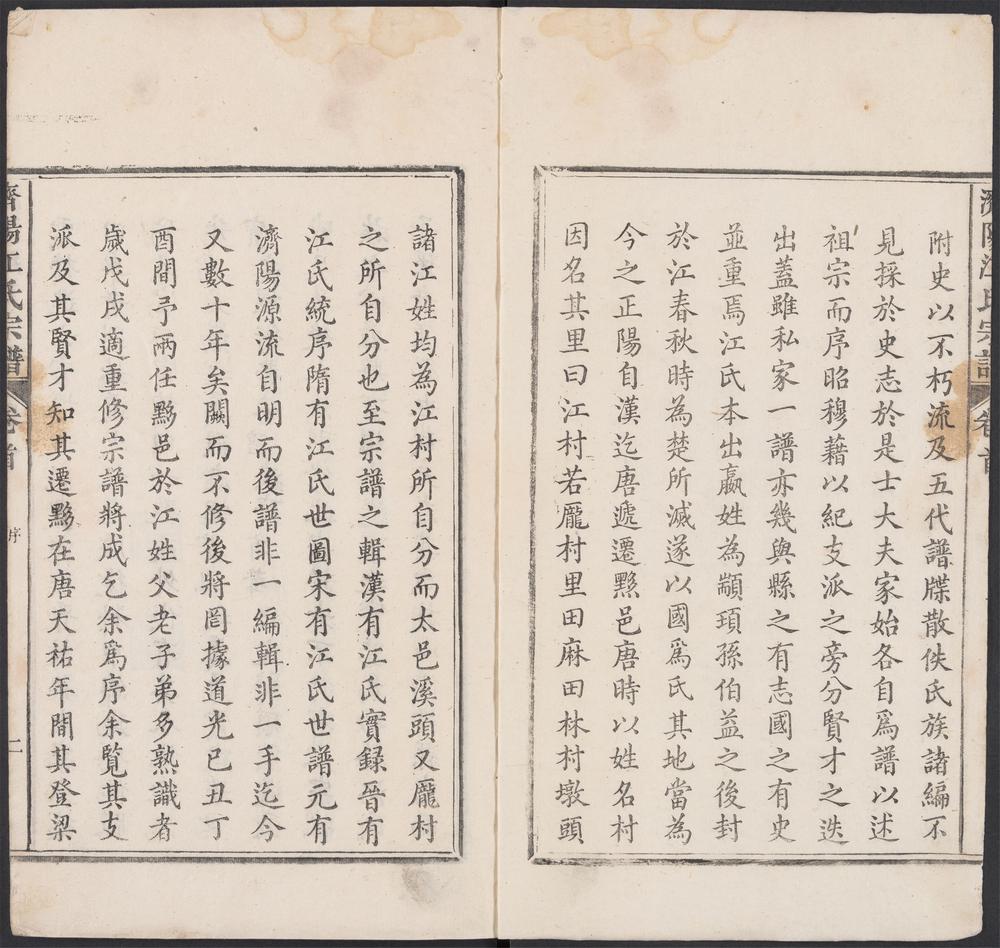 濟陽江氏宗譜 卷首
附史以不朽流及五代譜牒散佚氏族諸編不
見採於史志於是士大夫家始各自爲譜以述
祖宗而序昭穆藉以紀支派之旁分賢才之迭
出蓋雖私家一譜亦幾與縣之有志國之有史
並重焉江氏本出嬴姓為顓頊孫伯益之後封
於江春秋時為楚所滅遂以國爲氏其地當為
今之正陽自漢迄唐遞遷黟邑唐時以姓名村
因名其里曰江村若龎村里田麻田林村墩頭
諸江姓均為江村所自分而太邑溪頭又龎村
之所自分也至宗譜之輯漢有江氏實録晉有
江氏統序隋有江氏世圖宋有江氏世譜元有
濟陽源流自明而後譜非一編輯非一手迄今
又數十年矣闕而不修後將罔據道光已丑丁
酉間予兩任黟邑於江姓父老子弟多熟識者
歲戊戌適重修宗譜將成乞余爲序余覧其支
派及其賢才知其遷黟在唐天祐年間其登梁
濟陽江氏宗譜 卷首 序 二